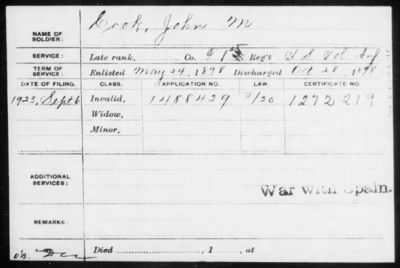 NAME OF SOLDIER: Cook, John M
SERVICE: Late rank, Co. G 1st Reg't U S Vol. Inf
TERM OF SERVICE: Enlisted May 24, 1898 Discharged Oct 28, 1898
DATE OF FILING. CLASS. APPLICATION NO. LAW. CERTIFICATE NO.
1923, Sept 6 Invalid, 1488429 6/20 1272219
Widow,
Minor,
ADDITIONAL SERVICES:
War with Spain.
REMARKS:
Died , 1 , at